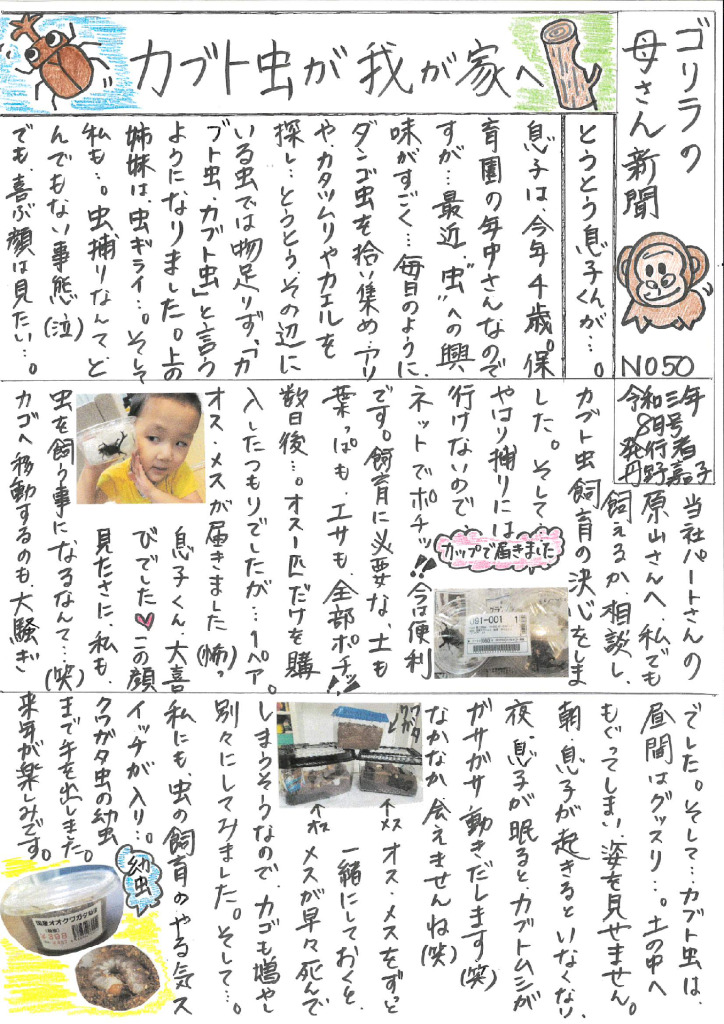 ゴリラの
母さん新聞
NO50
令和三年
8月号
発行者
丹野嘉子
カブト虫が我が家へ
とうとう息子くんが…。
息子は、今年4歳。保
育園の年中さんなので
すが…最近、"虫"への興
味がすごく…毎日のように、
ダンゴ虫を拾い集め、アリ
やカタツムリやカエルを
探し…とうとう、その辺に
いる虫では物足りず、「カ
ブト虫、カブト虫」と言う
ようになりました。上の
姉妹は、虫ギライ…。そして
私も…。虫捕りなんて、と
んでもない事態(泣)
でも、喜ぶ顔は見たい…。
当社パートさんの
原山さんへ、私でも
飼えるか、相談し、
カブト虫飼育の決心をしま
した。そして…
やはり捕りには
行けないので
ネットでポチッ!!今は便利
です。飼育に必要な、土も
葉っぱも、エサも、全部ポチッ!!
数日後…。オス1匹だけを購
入したつもりでしたが…1ペア。
オス・メスが届きました(怖っ)
息子くん、大喜
びでした♥この顔
見たさに、私も、
虫を飼う事になるなんて…(笑)
カゴへ移動するのも、大騒ぎ
カップで届きました
091-001
1
でした。そして…カブト虫は、
昼間はグッスリ…。土の中へ
もぐってしまい、姿を見せません。
朝、息子が起きるといなくなり、
夜、息子が眠るとカブトムシが
ガサガサ動きだします(笑)
なかなか、会えませんね(笑)
オス・メスをずっと
一緒にしておくと、
メスが早々死んで
しまうそうなので、カゴも増やし
別々にしてみました。そして…。
私にも、虫の飼育のやる気ス
イッチが入り…。
クワガタ虫の幼虫
まで手を出しました。
来年が楽しみです。
クワガタ
↑メス
↑オス
幼虫
国産オオクワガタ幼虫
¥398